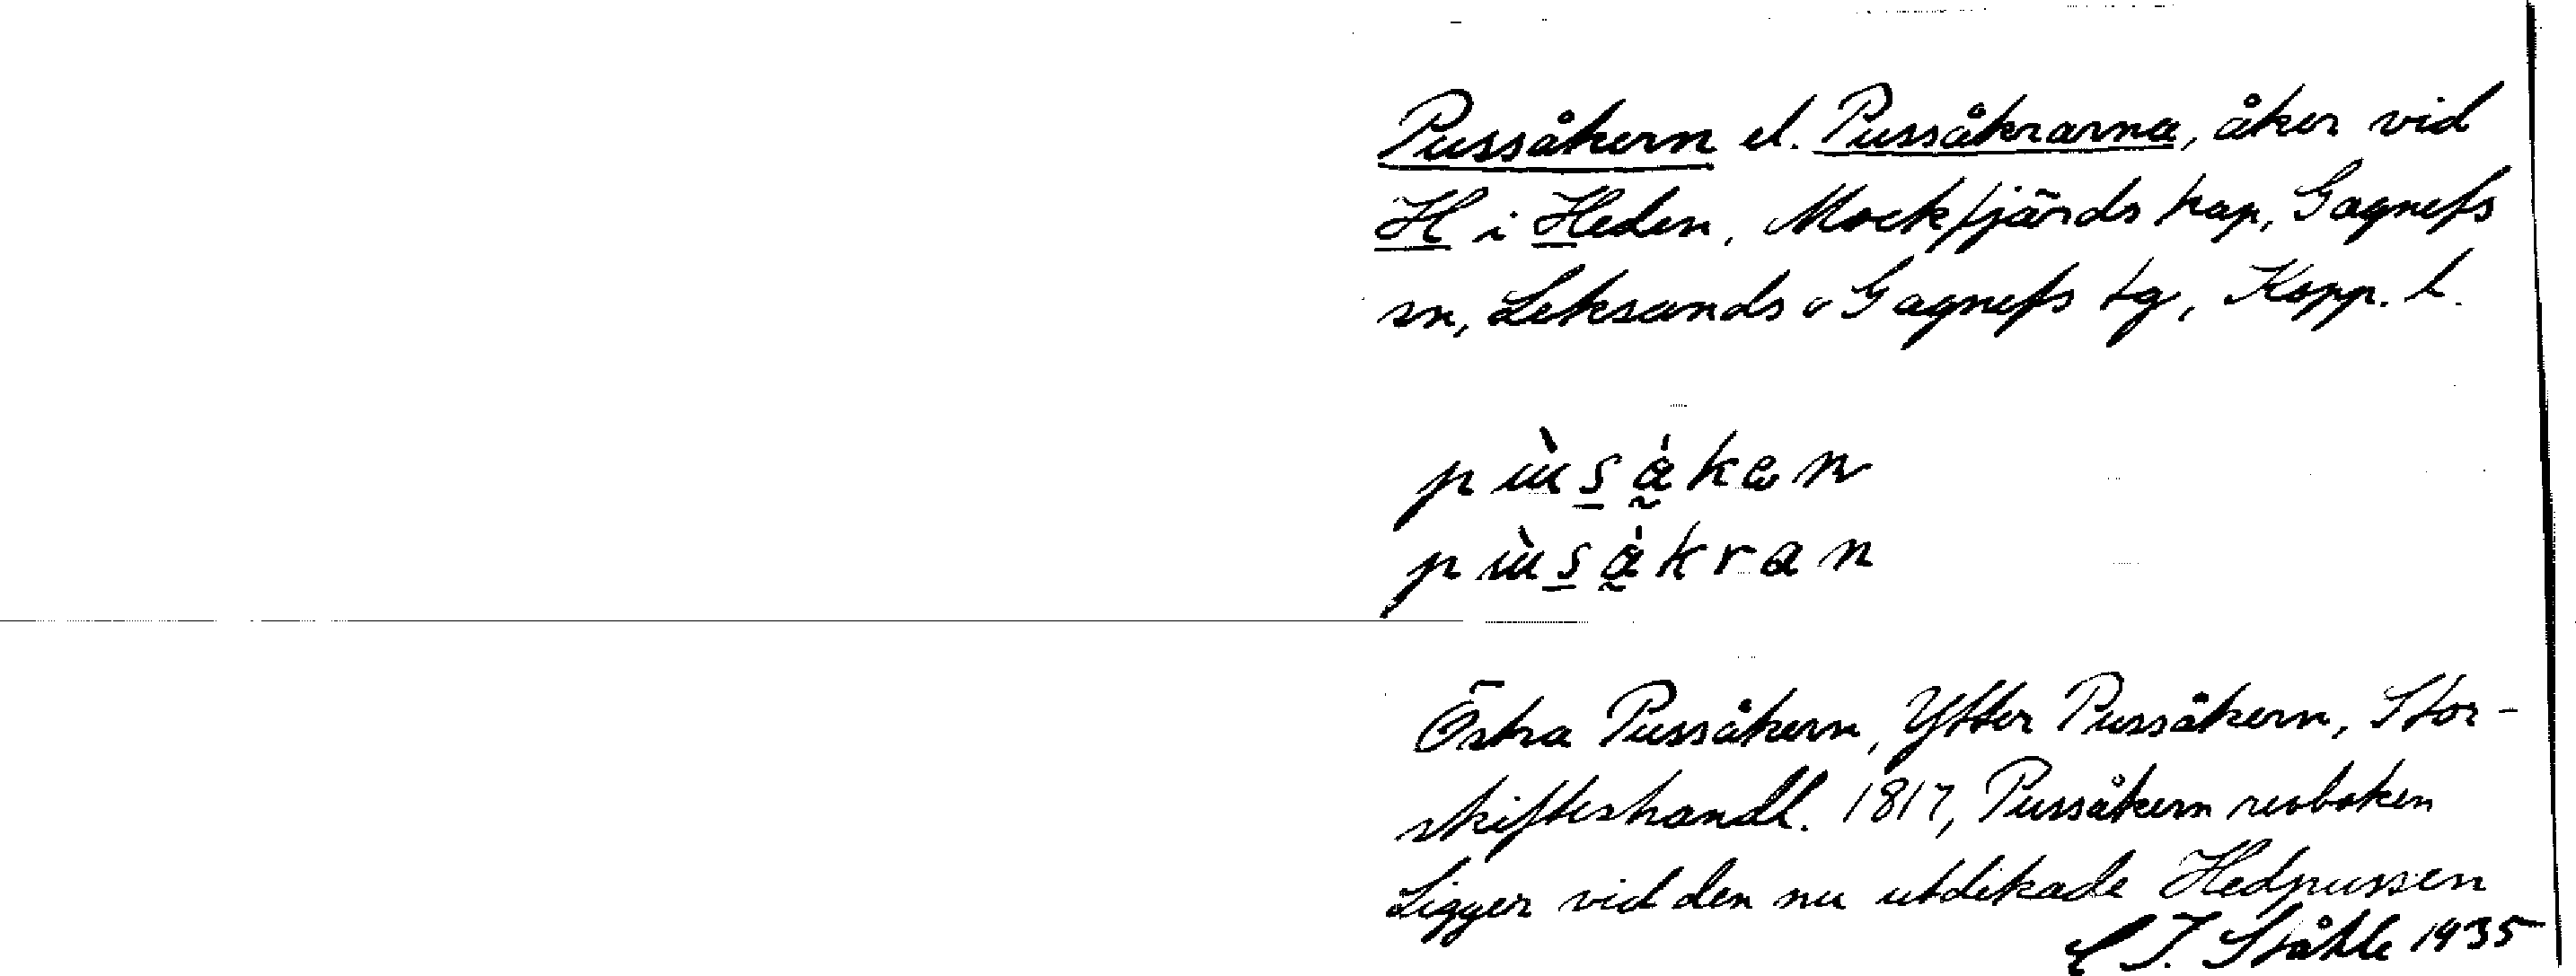 Pussåkern el. Pussåkrarna, åker vid
H i Heden, Mockfjärds kap, Gagnefs
sn, Leksands o Gagnefs tg, Kopp. l.
pùsákan
pùsákran
Östra Pussåkern, Ytter Pussåkern, Stor-
skifteshandl. 1817, Pussåkern revboken
Ligger vid den nu utdikade Hedpussen
C I. Ståhle 1935